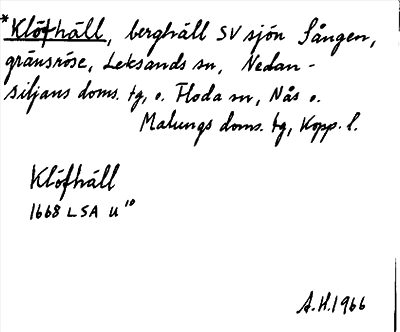 *Klöfhäll, berghäll SV sjön Sången,
gränsröse, Leksands sn, Nedan-
siljans doms. tg, o. Floda sn, Nås o.
Malungs doms. tg, Kopp. l.
Klöfhäll
1668 LSA U¹⁰
A.H. 1966